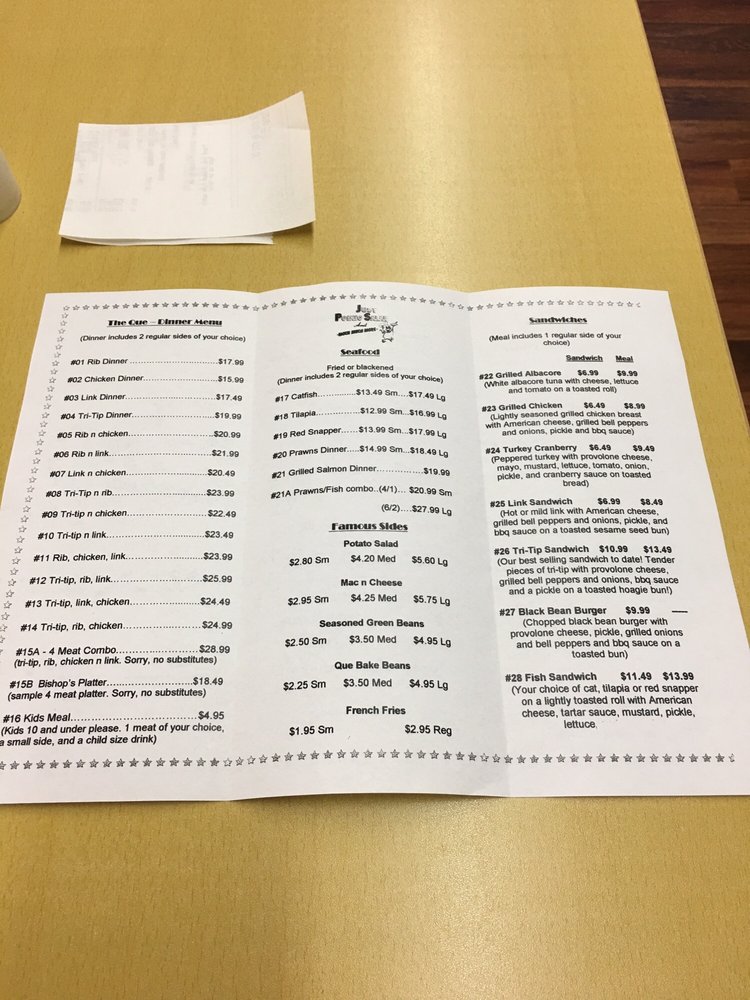 The Que – Dinner Menu
(Dinner includes 2 regular sides of your choice)
#01 Rib Dinner ..............................$17.99
#02 Chicken Dinner..........................$15.99
#03 Link Dinner..............................$17.49
#04 Tri-Tip Dinner...........................$19.99
#05 Rib n chicken............................$20.99
#06 Rib n link.................................$21.99
#07 Link n chicken...........................$20.49
#08 Tri-Tip n rib..............................$23.99
#09 Tri-tip n chicken........................$22.49
#10 Tri-tip n link..............................$23.49
#11 Rib, chicken, link.......................$23.99
#12 Tri-tip, rib, link..........................$25.99
#13 Tri-tip, link, chicken...................$24.49
#14 Tri-tip, rib, chicken.....................$24.99
#15A - 4 Meat Combo......................$28.99
(tri-tip, rib, chicken n link. Sorry, no substitutes)
#15B Bishop's Platter......................$18.49
(sample 4 meat platter. Sorry, no substitutes)
#16 Kids Meal.................................$4.95
(Kids 10 and under please. 1 meat of your choice,
a small side, and a child size drink)
Seafood
Fried or blackened
(Dinner includes 2 regular sides of your choice)
#17 Catfish...............$13.49 Sm....$17.49 Lg
#18 Tilapia................$12.99 Sm...$16.99 Lg
#19 Red Snapper......$13.99 Sm...$17.99 Lg
#20 Prawns Dinner....$14.99 Sm...$18.49 Lg
#21 Grilled Salmon Dinner...............$19.99
#21A Prawns/Fish combo..(4/1)... $20.99 Sm
(6/2)....$27.99 Lg
Famous Sides
Potato Salad
$2.80 Sm $4.20 Med $5.60 Lg
Mac n Cheese
$2.95 Sm $4.25 Med $5.75 Lg
Seasoned Green Beans
$2.50 Sm $3.50 Med $4.95 Lg
Que Bake Beans
$2.25 Sm $3.50 Med $4.95 Lg
French Fries
$1.95 Sm $2.95 Reg
Sandwiches
(Meal includes 1 regular side of your
choice)
Sandwich Meal
#22 Grilled Albacore $6.99 $9.99
(White albacore tuna with cheese, lettuce
and tomato on a toasted roll)
#23 Grilled Chicken $6.49 $8.99
(Lightly seasoned grilled chicken breast
with American cheese, grilled bell peppers
and onions, pickle and bbq sauce)
#24 Turkey Cranberry $6.49 $9.49
(Peppered turkey with provolone cheese,
mayo, mustard, lettuce, tomato, onion,
pickle, and cranberry sauce on toasted
bread)
#25 Link Sandwich $6.99 $8.49
(Hot or mild link with American cheese,
grilled bell peppers and onions, pickle, and
bbq sauce on a toasted sesame seed bun)
#26 Tri-Tip Sandwich $10.99 $13.49
(Our best selling sandwich to date! Tender
pieces of tri-tip with provolone cheese,
grilled bell peppers and onions, bbq sauce
and a pickle on a toasted hoagie bun!)
#27 Black Bean Burger $9.99 ——
(Chopped black bean burger with
provolone cheese, pickle, grilled onions
and bell peppers and bbq sauce on a
toasted bun)
#28 Fish Sandwich $11.49 $13.99
(Your choice of cat, tilapia or red snapper
on a lightly toasted roll with American
cheese, tartar sauce, mustard, pickle,
lettuce.